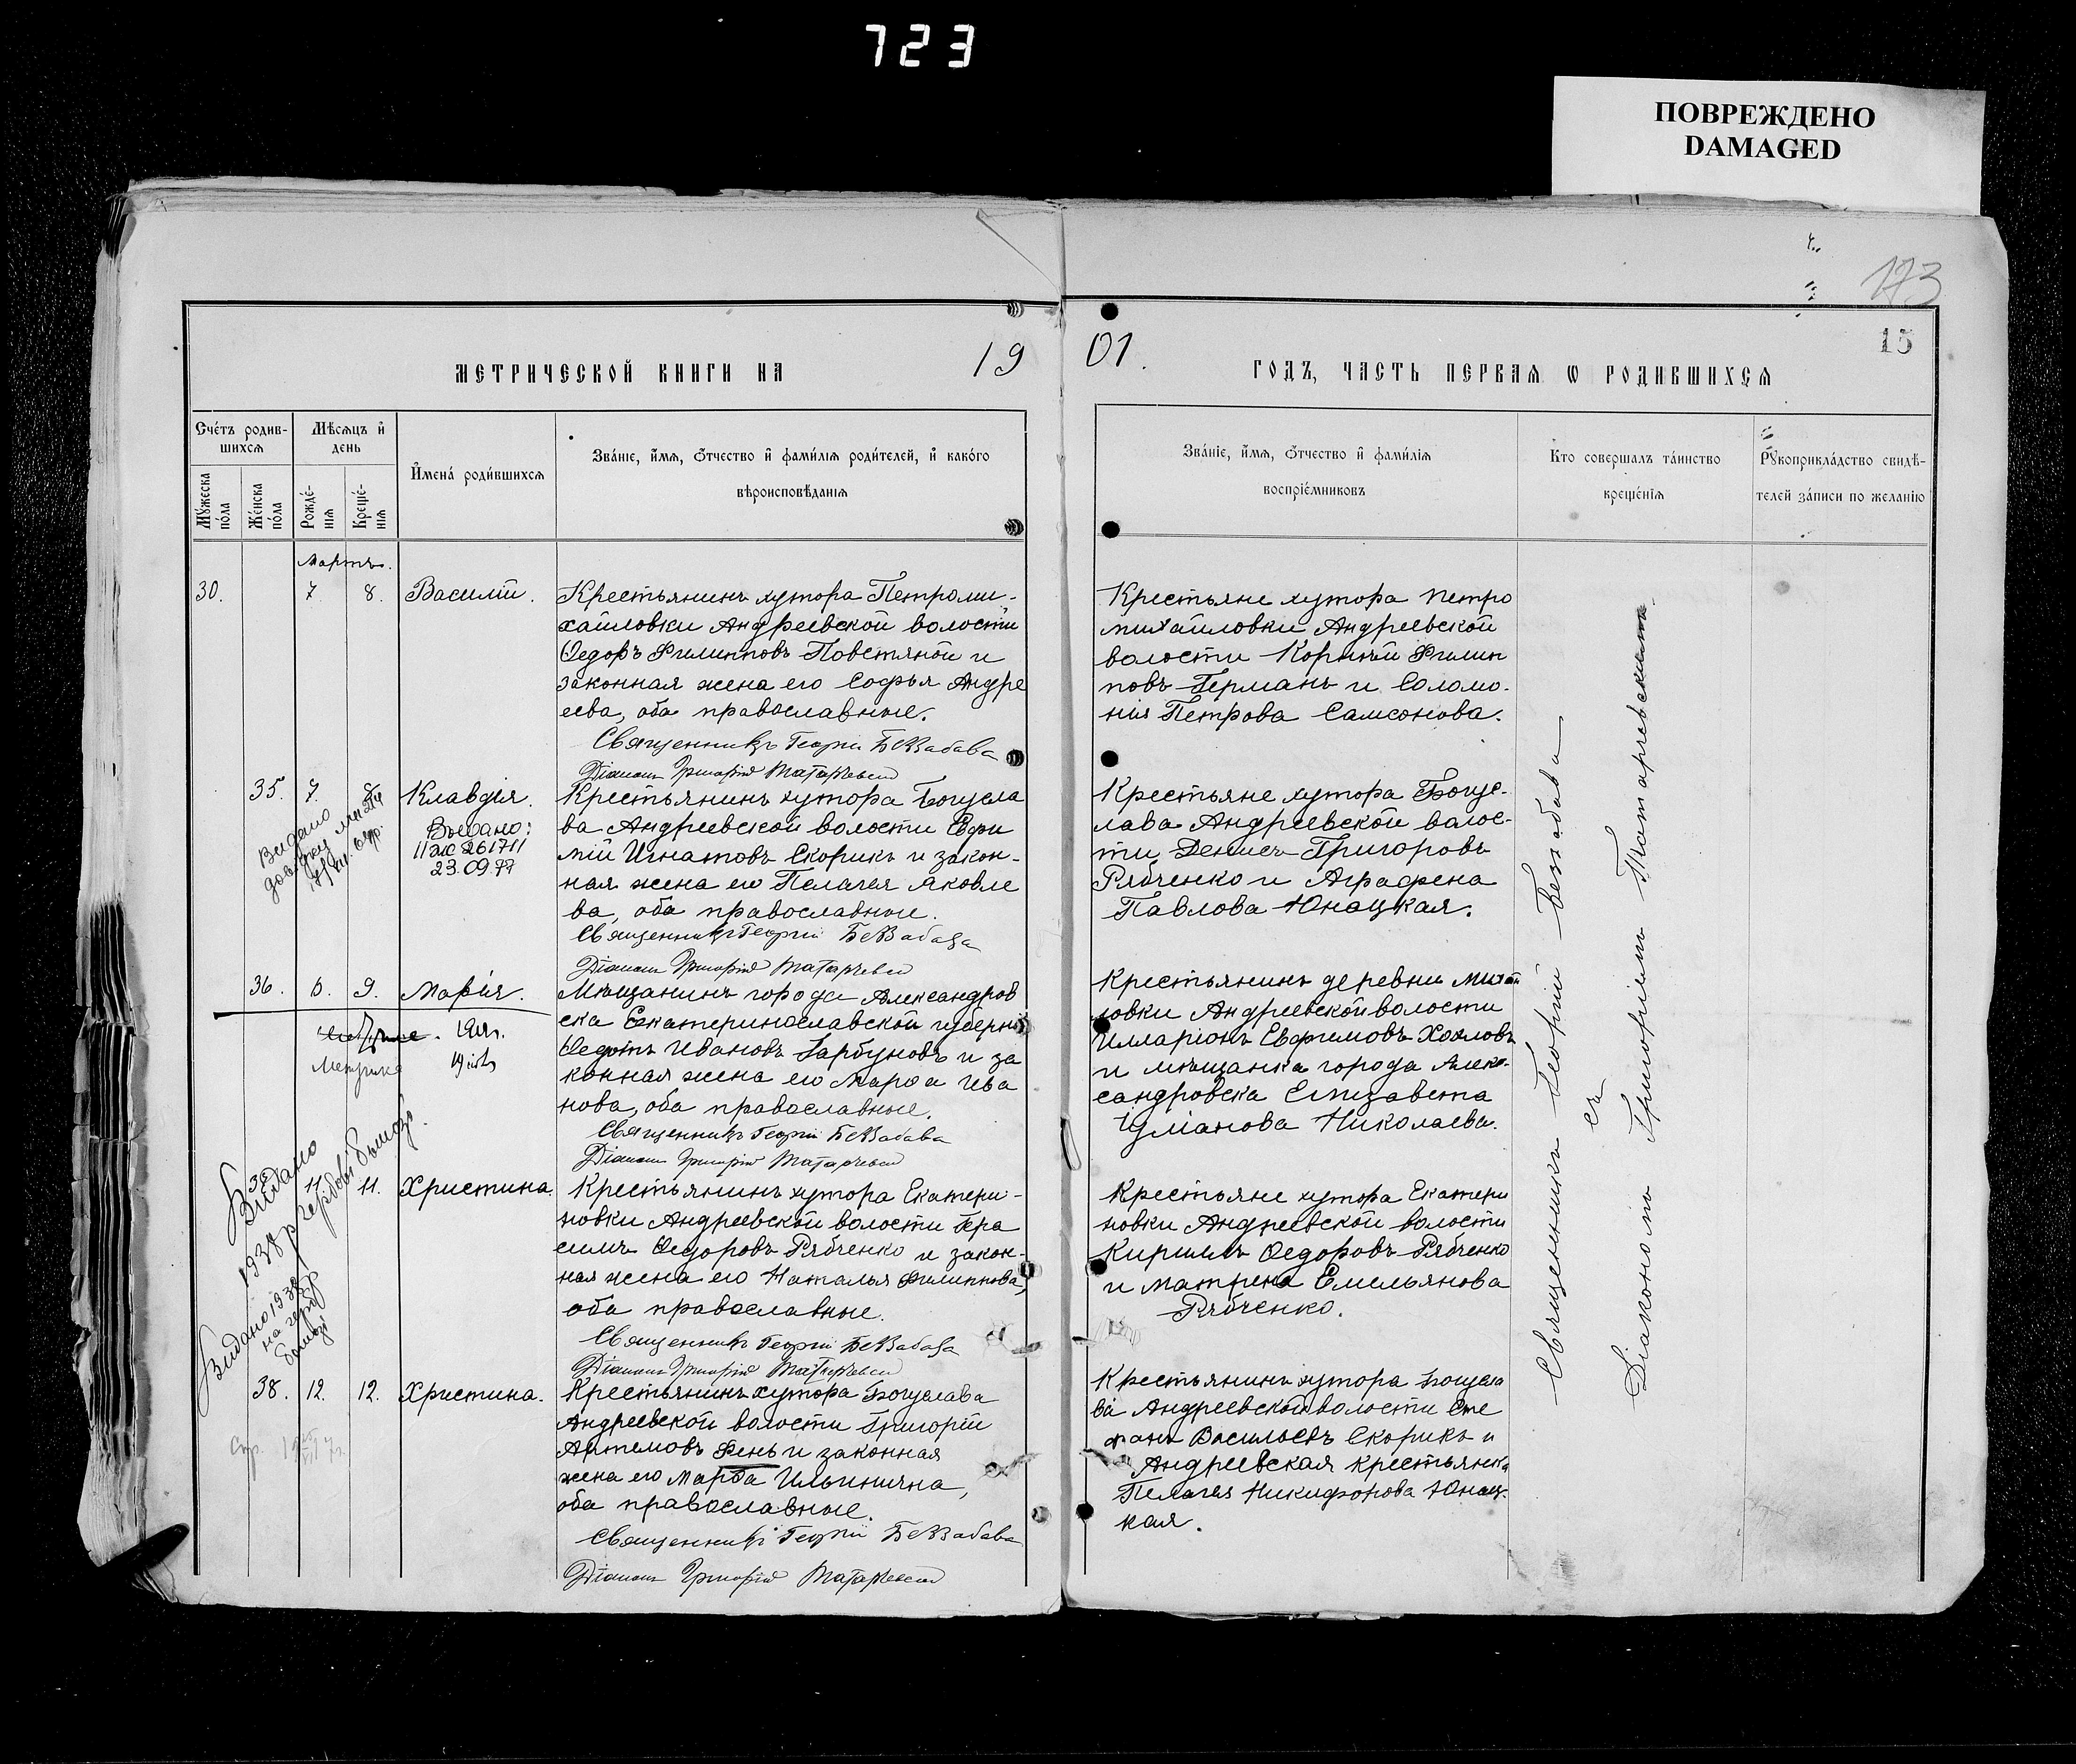 723
ПОВРЕЖДЕНО
DAMAGED
173
15
МЕТРИЧЕСКОЙ КНИГИ НА 19
01. ГОДЪ, ЧАСТЬ ПЕРВАЯ Ѡ РОДИВШИХСЯ
Счетъ родив-
шихся
Мѣсяцъ и
день
Мужеска
пола
Женска
пола
Рожде-
нія
Креще-
нія
Имена родившихся
Званіе, имя, отчество и фамилія родителей, и какого
вѣроисповѣданія
Званіе, имя, отчество и фамилія
воспріемниковъ
Кто совершалъ таинство
крещенія
Рукоприкладство свидѣ-
телей записи по желанію
Мартъ.
30. 7 8. Василій.
Крестьянинъ хутора Петроми-
хайловки Андреевской волости
Ѳедоръ Филипповъ Повстяной и
законная жена его Софья Андре
ева, оба православные.
Священникъ Георгій Беззабава
Діаконъ Григорій Татаржевскій
Крестьяне хутора Петро
михайловки Андреевской
волости Корнилій Филип
повъ Германъ и Соломо-
нія Петрова Самсонова.
35. 7. 8 Клавдія.
Видано
довідку
Выдано:
11 ЖС 261711
23.09.77
Крестьянинъ хутора Богусла
ва Андреевской волости Ефи
мій Игнатовъ Скорикъ и закон-
ная жена его Пелагея Яковле
ва, оба православные.
Священникъ Георгій Беззабава
Діаконъ Григорій Татаржевскій
Крестьяне хутора Богус-
лава Андреевской волос-
ти Денисъ Григоровъ
Рябченко и Аграфена
Павлова Юнацкая.
36. 8. 9. Марія.
Метрика
Мѣщанинъ города Александров
ска Екатеринославской губерніи
Ѳедотъ Ивановъ Гарбуновъ и за
конная жена его Марѳа Ива
нова, оба православные.
Священникъ Георгій Беззабава
Діаконъ Григорій Татаржевскій
Крестьянинъ деревни Михай
ловки Андреевской волости
Илларіонъ Ефимовъ Хохловъ
и мѣщанка города Алек-
сандровска Елизавета
Уліанова Николаева.
11 11. Христина.
Видано
1938 р
Видано 1938
на
Крестьянинъ хутора Екатери-
новки Андреевской волости Гера
симъ Ѳедоровъ Рябченко и закон-
ная жена его Наталья Филиппова,
оба православные.
Священникъ Георгій Беззабава
Діаконъ Григорій Татаржевскій
Крестьяне хутора Екатери
новки Андреевской волости
Кириллъ Ѳедоровъ Рябченко
и Матрена Емельянова
Рябченко.
38. 12. 12. Христина.
Крестьянинъ хутора Богуслава
Андреевской волости Григорій
Артемовъ Фень и законная
жена его Марѳа Ильинична,
оба православные.
Священникъ Георгій Беззабава
Діаконъ Григорій Татаржевскій
Крестьянинъ хутора Богусла
ва Андреевской волости Сте
фанъ Васильевъ Скорикъ и
Андреевская крестьянка
Пелагея Никифорова Юнац-
кая.
Священникъ Георгій Беззабава
съ
Діакономъ Григоріемъ Татаржевскимъ.